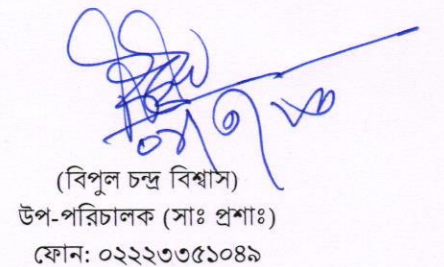 (বিপুল চন্দ্র বিশ্বাস)
উপ-পরিচালক (সাঃ প্রশাঃ)
ফোন: ০২২২৩৩৫১০৪৯